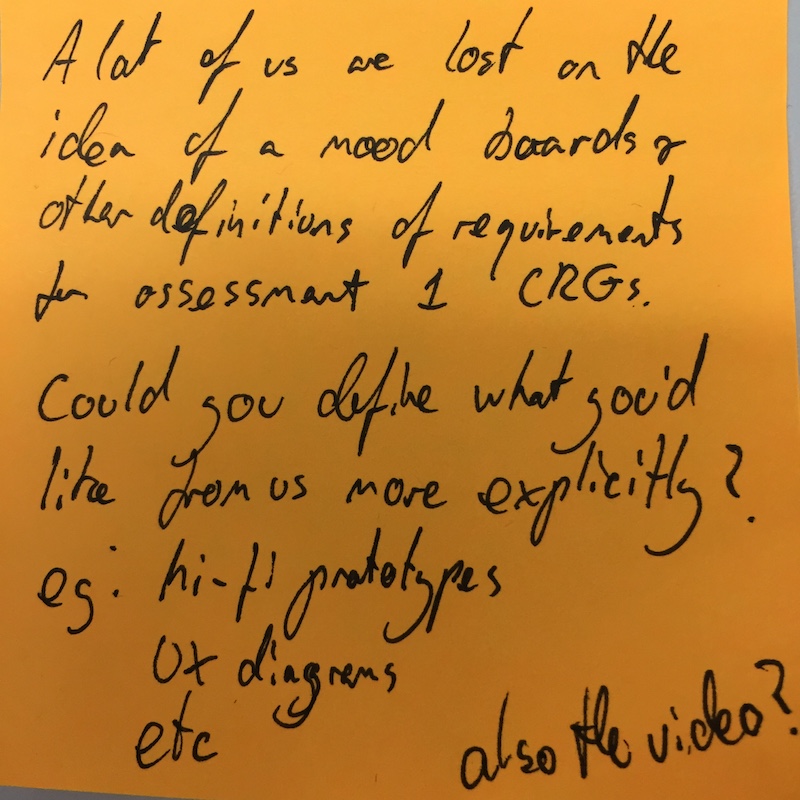 A lot of us are lost on the
idea of a mood boards &
other definitions of requirements
for assessment 1 CRGs.
Could you define what you'd
like from us more explicitly?
eg: hi-fi prototypes
UX diagrams
etc
also the video?